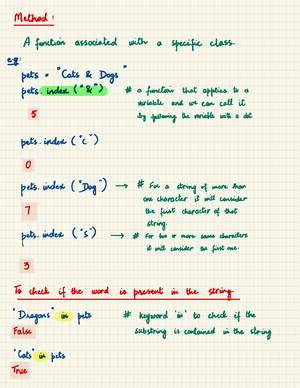 Method :
A function associated with a specific class.
e.g:
pets = "Cats & Dogs"
pets. index ("&") # a function that applies to a
variable and we can call it
by following the variable with a dot
5
pets. index ("C")
0
pets. index ("Dog") → # For a string of more than
one character it will consider
the first character of that
string.
7
pets. index ("s") → # For two or more same characters
it will consider the first one.
3
To check if the word is present in the string
"Dragons" in pets # keyword 'in' to check if the
substring is contained in the string
False
"Cats" in pets
True